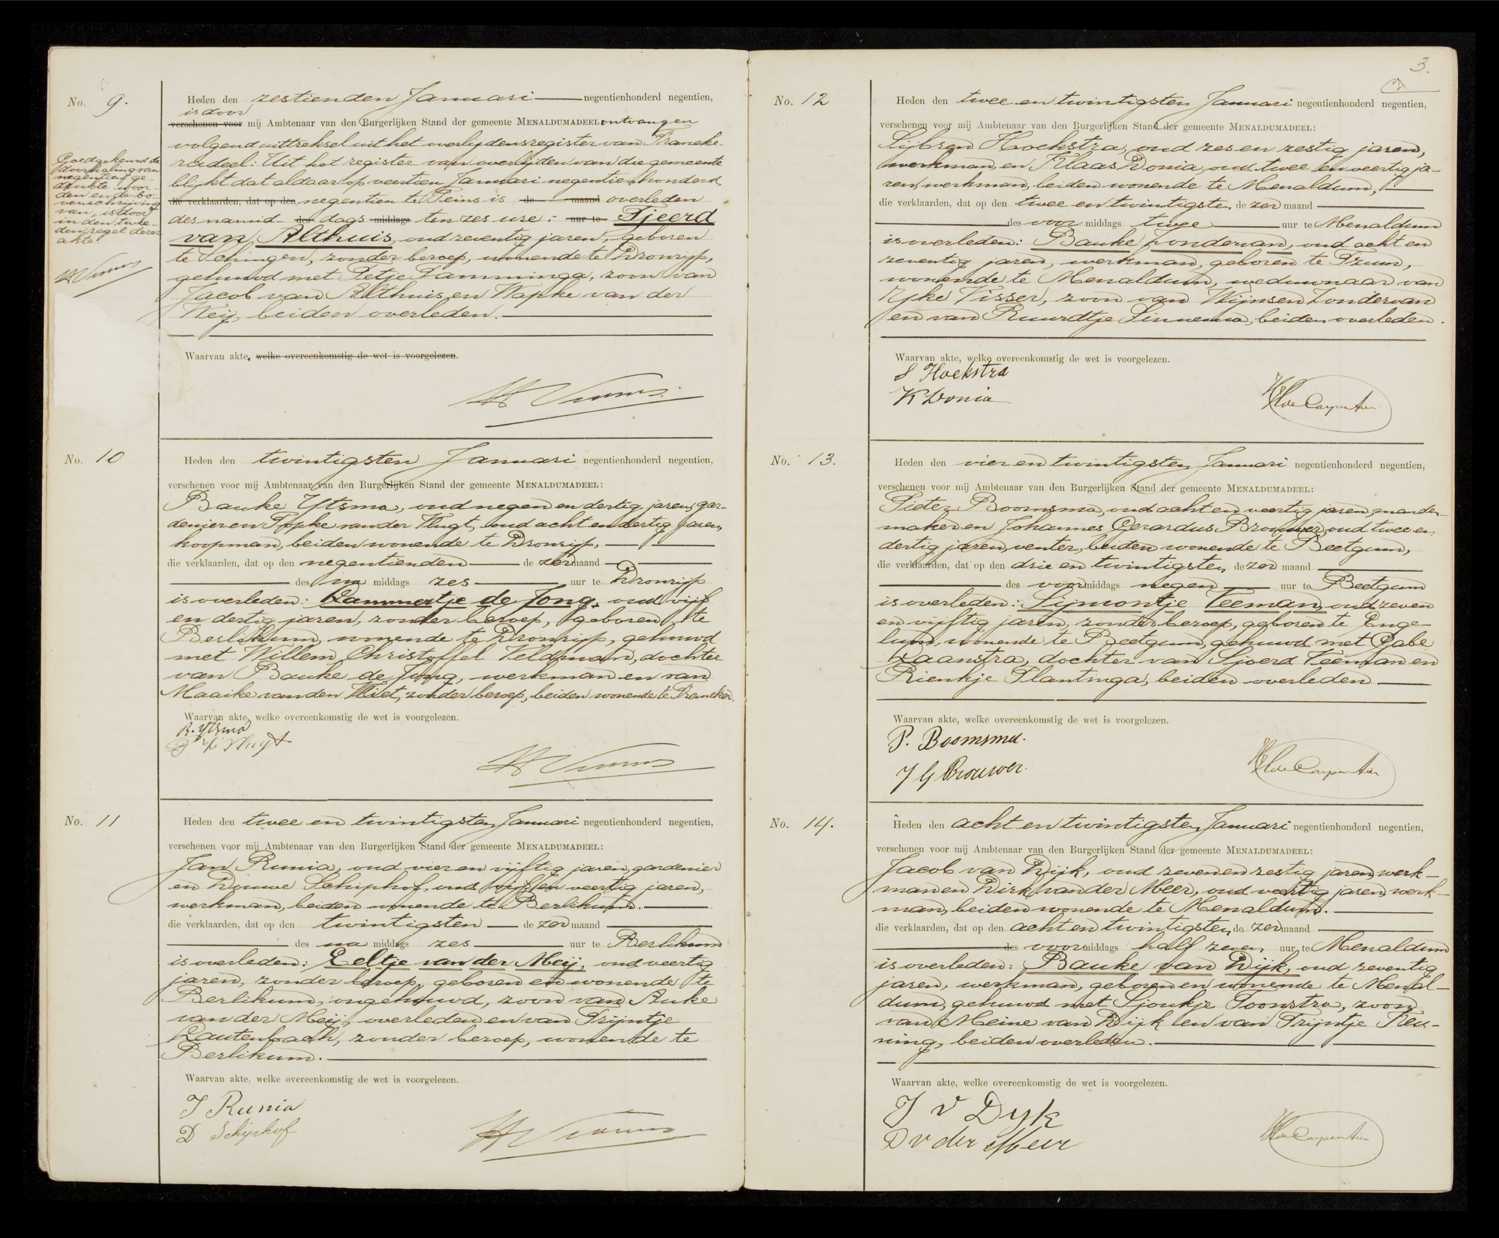 No. 9.
Heden den zestienden Januari negentienhonderd negentien,
is door
verschenen voor mij Ambtenaar van den Burgerlijken Stand der gemeente MENALDUMADEEL ontvangen
volgend uittreksel uit het overlydensregister van Franeke-
radeel: Uit het register van overlyden van die gemeente
blykt dat aldaar op veertien Januari negentienhonderd
die verklaarden, dat op den negentien te Peins is de maand overleden
des namid- des dags middags ten zes ure: uur te Tjeerd
van Althuis, oud zeventig jaren, geboren
te , zonder beroep, wonende te Dronrijp,
gehuwd met Pietje Tamminga, zoon van
Jacob van Althuis, en Wapke van der
Weij, beiden overleden.
Waarvan akte, welke overeenkomstig de wet is voorgelezen.
Goedgekeurd de
doorhaling van
negentien ge-
drukte woor-
den en de bo-
venschrijving
van, is door
in den twee-
den regel dezer
akte!
No. 10
Heden den twintigsten Januari negentienhonderd negentien,
verschenen voor mij Ambtenaar van den Burgerlijken Stand der gemeente MENALDUMADEEL:
Bauke Ytsma, oud negen en dertig jaren, gar-
denier en Popke van der Vlugt, oud acht en dertig jaren,
koopman, beiden wonende te Dronrijp,
die verklaarden, dat op den negentienden de zer maand
des na middags zes uur te Dronrijp
is overleden: Lammertje de Jong, oud vijf
en dertig jaren, zonder beroep, geboren te
Berlikum, wonende te Dronrijp, gehuwd
met Willem Christoffel Veldman, dochter
van Bauke de Jong, werkman en van
Maaike van der Vliet, zonder beroep, beiden wonende te Franeker.
Waarvan akte, welke overeenkomstig de wet is voorgelezen.
B. Ytsma
No. 11
Heden den twee en twintigsten Januari negentienhonderd negentien,
verschenen voor mij Ambtenaar van den Burgerlijken Stand der gemeente MENALDUMADEEL:
Jan Runia, oud vier en vijftig jaren, gardenier
en Douwe Schiphof, oud vijf en veertig jaren,
werkman, beiden wonende te Berlikum.
die verklaarden, dat op den twintigsten de zer maand
des na middags zes uur te Berlikum
is overleden: Eeltje van der Meij, oud veertig
jaren, zonder beroep, geboren en wonende te
Berlikum, ongehuwd, zoon van Auke
van der Meij, overleden en van Trijntje
Lautenbach, zonder beroep, wonende te
Berlikum.
Waarvan akte, welke overeenkomstig de wet is voorgelezen.
J Runia
D Schiphof
3.
No. 12
Heden den twee en twintigsten Januari negentienhonderd negentien,
verschenen voor mij Ambtenaar van den Burgerlijken Stand der gemeente MENALDUMADEEL:
Sijbren Hoekstra, oud zes en zestig jaren,
werkman en Klaas Donia, oud twee en veertig ja-
ren, werkman, beiden wonende te Menaldum,
die verklaarden, dat op den twee en twintigsten de zer maand
des voor middags twee uur te Menaldum
is overleden: Bauke Zondervan, oud acht en
zeventig jaren, werkman, geboren te Tzum,
wonende te Menaldum, weduwnaar van
Ypke Visser, zoon van Wijnsen Zondervan
en van Ruurdtje Sinnema, beiden overleden.
Waarvan akte, welke overeenkomstig de wet is voorgelezen.
S Hoekstra
K Donia
No. 13.
Heden den vier en twintigsten Januari negentienhonderd negentien,
verschenen voor mij Ambtenaar van den Burgerlijken Stand der gemeente MENALDUMADEEL:
Pieter Boomsma, oud acht en veertig jaren, mander-
maker en Johannes Gerardus Brouwer, oud twee en
dertig jaren, venter, beiden wonende te Beetgum,
die verklaarden, dat op den drie en twintigsten de zer maand
des voor middags negen uur te Beetgum
is overleden: Sijmontje Veeman, oud zeven
en vijftig jaren, zonder beroep, geboren te Enge-
lum, wonende te Beetgum, gehuwd met Gabe
Zaanstra, dochter van Sjoerd Veeman en
Rienkje Plantinga, beiden overleden
Waarvan akte, welke overeenkomstig de wet is voorgelezen.
P. Boomsma.
J G Brouwer.
No. 14.
Heden den acht en twintigsten Januari negentienhonderd negentien,
verschenen voor mij Ambtenaar van den Burgerlijken Stand der gemeente MENALDUMADEEL:
Jacob van Dijk, oud zeven en zestig jaren, werk-
man en Dirk van der Meer, oud veertig jaren, werk-
man, beiden wonende te Menaldum.
die verklaarden, dat op den acht en twintigsten de zer maand
des voor middags half zeven uur te Menaldum
is overleden: Bauke van Dijk, oud zeventig
jaren, werkman, geboren en wonende te Menal-
dum, gehuwd met Sjoukje Toonstra, zoon
van Meine van Dijk en van Trijntje Teu-
ning, beiden overleden.
Waarvan akte, welke overeenkomstig de wet is voorgelezen.
J v Dyk
D v der Meer